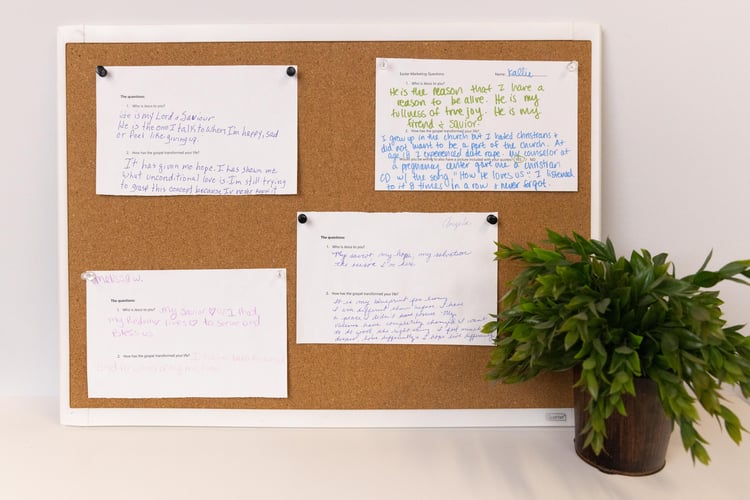 The questions:
1. Who is Jesus to you?
He is my Lord & Saviour
He is the one I talk to when I'm happy, sad
or feel like giving up.
2. How has the gospel transformed your life?
It has given me hope. It has shown me
what unconditional love is. I'm still trying
to grasp this concept because I've never
Easter Marketing Questions Name: Kallie
1. Who is Jesus to you?
He is the reason that I have a
reason to be alive. He is my
fullness of true joy. He is my
friend & savior.
2. How has the gospel transformed your life?
I grew up in the church but I hated christians &
did not want to be a part of the church. At
age I experienced date rape. My counselor at
a pregnancy center gave me a christian
CD w/ the song "How He loves us". I listened
to it 8 times in a row & never forgot.
Angela
The questions:
1. Who is Jesus to you?
My savior, my hope, my salvation
the reason I'm
2. How has the gospel transformed your life?
It is my blueprint for living
I am different than before. I have
a peace I didn't know before. My
values have completely changed. I want
to do good, the right thing. I feel much
love differently, I hope differently
Melissa W.
The questions:
1. Who is Jesus to you? My savior I that
my Redeemer lives to serve and
bless us.
2. How has the gospel transformed your life? I have been
and